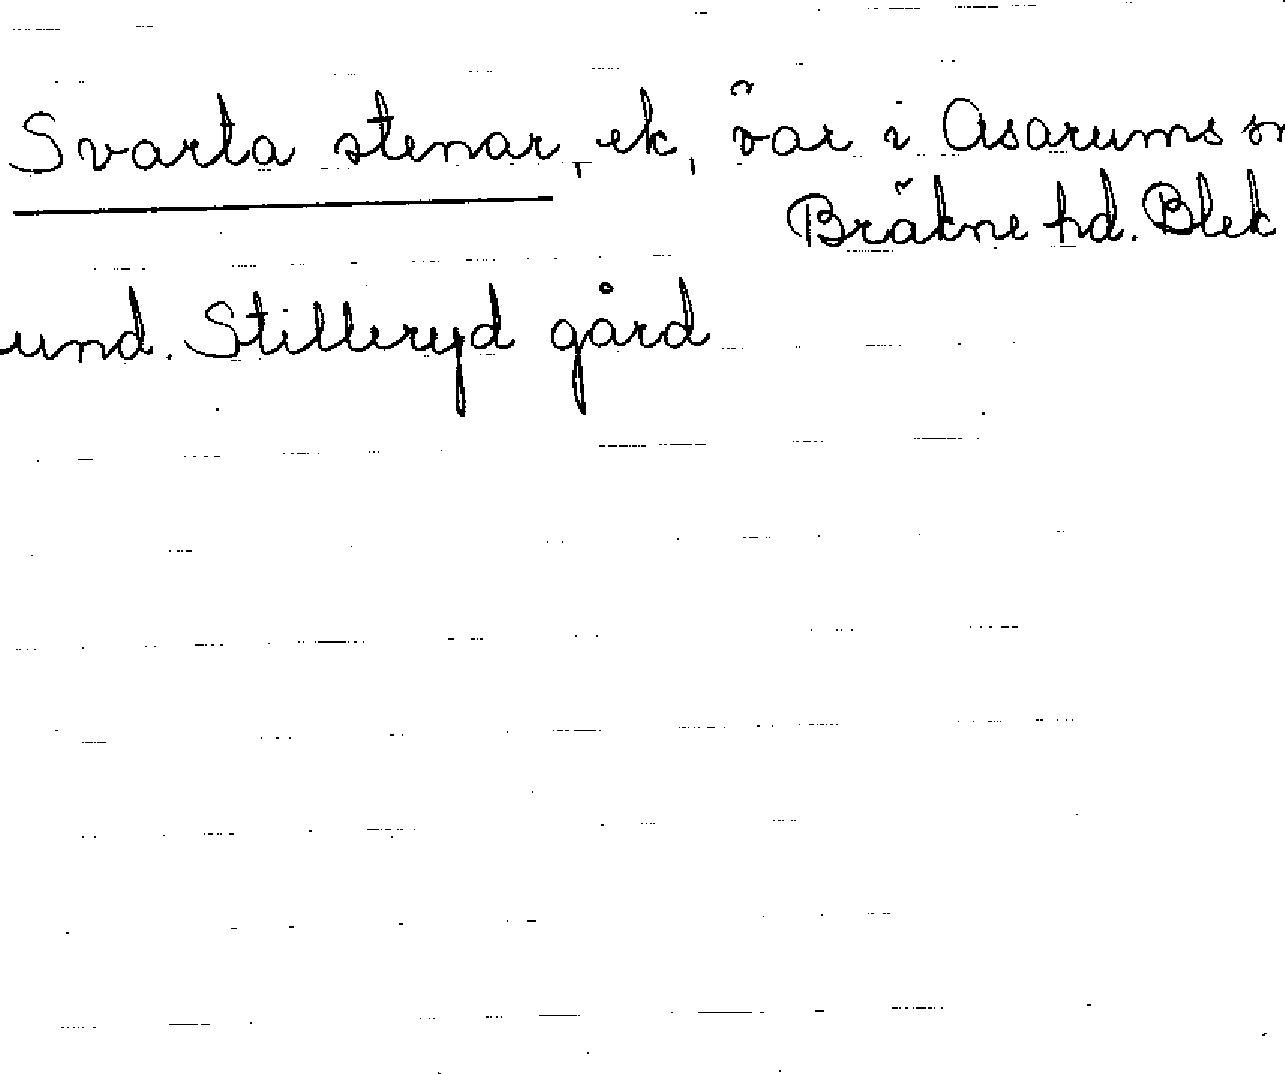 Svarta stenar, ek, öar i Asarums sn
Bräkne hd. Blek
und. Stilleryd gård